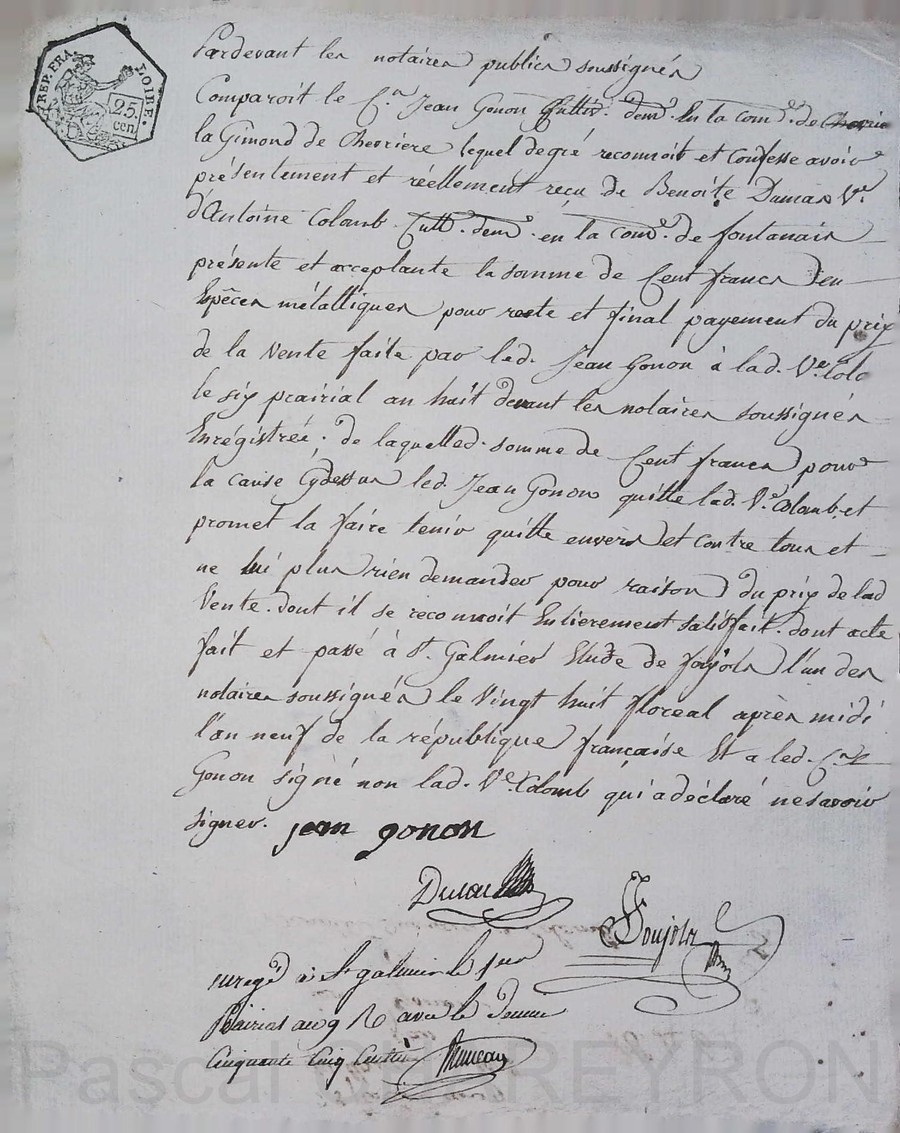 REP. FRA.
LOIRE.
25.
cen
Pardevant les notaires publics soussignés
Comparoit le C.n Jean Gonon Cultiv. dem.t en la com.e de Chevrie
la Gimond de Chevriere lequel de gré reconnoit et confesse avoir
présentement et réellement reçu de Benoite Dumas V.e
d'Antoine Colomb. Cult. dem.t en la com.e de fontanais
présente et acceptante la somme de Cent francs en
Espêces métalliques pour reste et final payement du prix
de la Vente faite par led. Jean Gonon à lad. V.e Colo
le six prairial an huit devant les notaires soussignés
Enrégistrée. de laquelled. somme de Cent francs pour
la cause Cydessus led. Jean Gonon quitte lad. V.e Colomb et
promet la faire tenir quitte envers et contre tous et
ne lui plus rien demander pour raison du prix de lad
Vente. dont il se reconnoit Entierement satisfait. dont acte
fait et passé à S.t Galmier Etude de Joujols l'un des
notaires soussignés le Vingt huit floreal après midi
l'an neuf de la république française Et a led. C.n
Gonon signé non lad. V.e Colomb qui a déclaré ne savoir
signer. jean gonon
Joujols
enregé à St galmier le 1er
Prairial an 9 R avec le
Cinquante Cinq Centi
Pascal CH REYRON